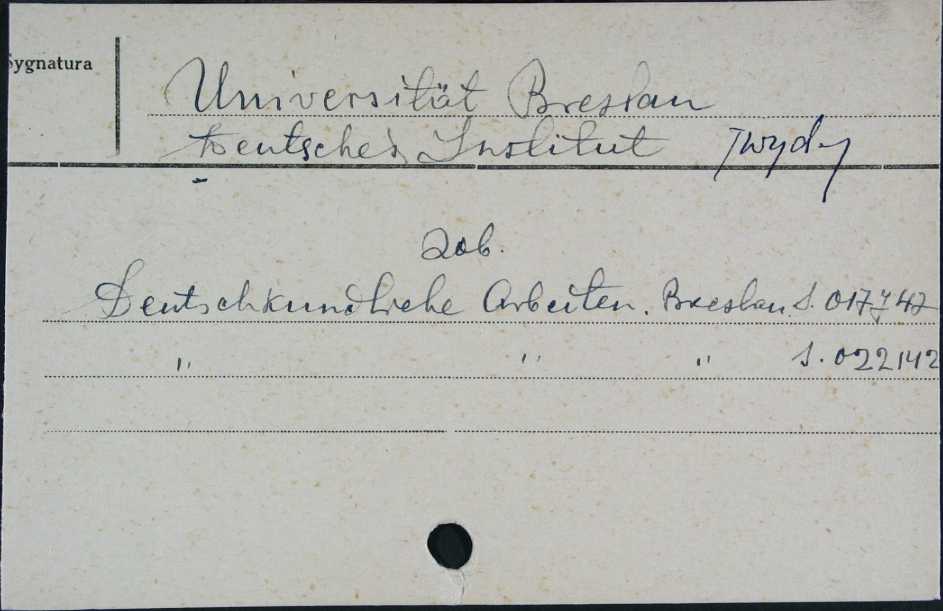 Sygnatura
Universität Breslau
Deutsches Institut
zob.
Deutschkundliche Arbeiten. Breslau S. 017747
" " " S. 022142